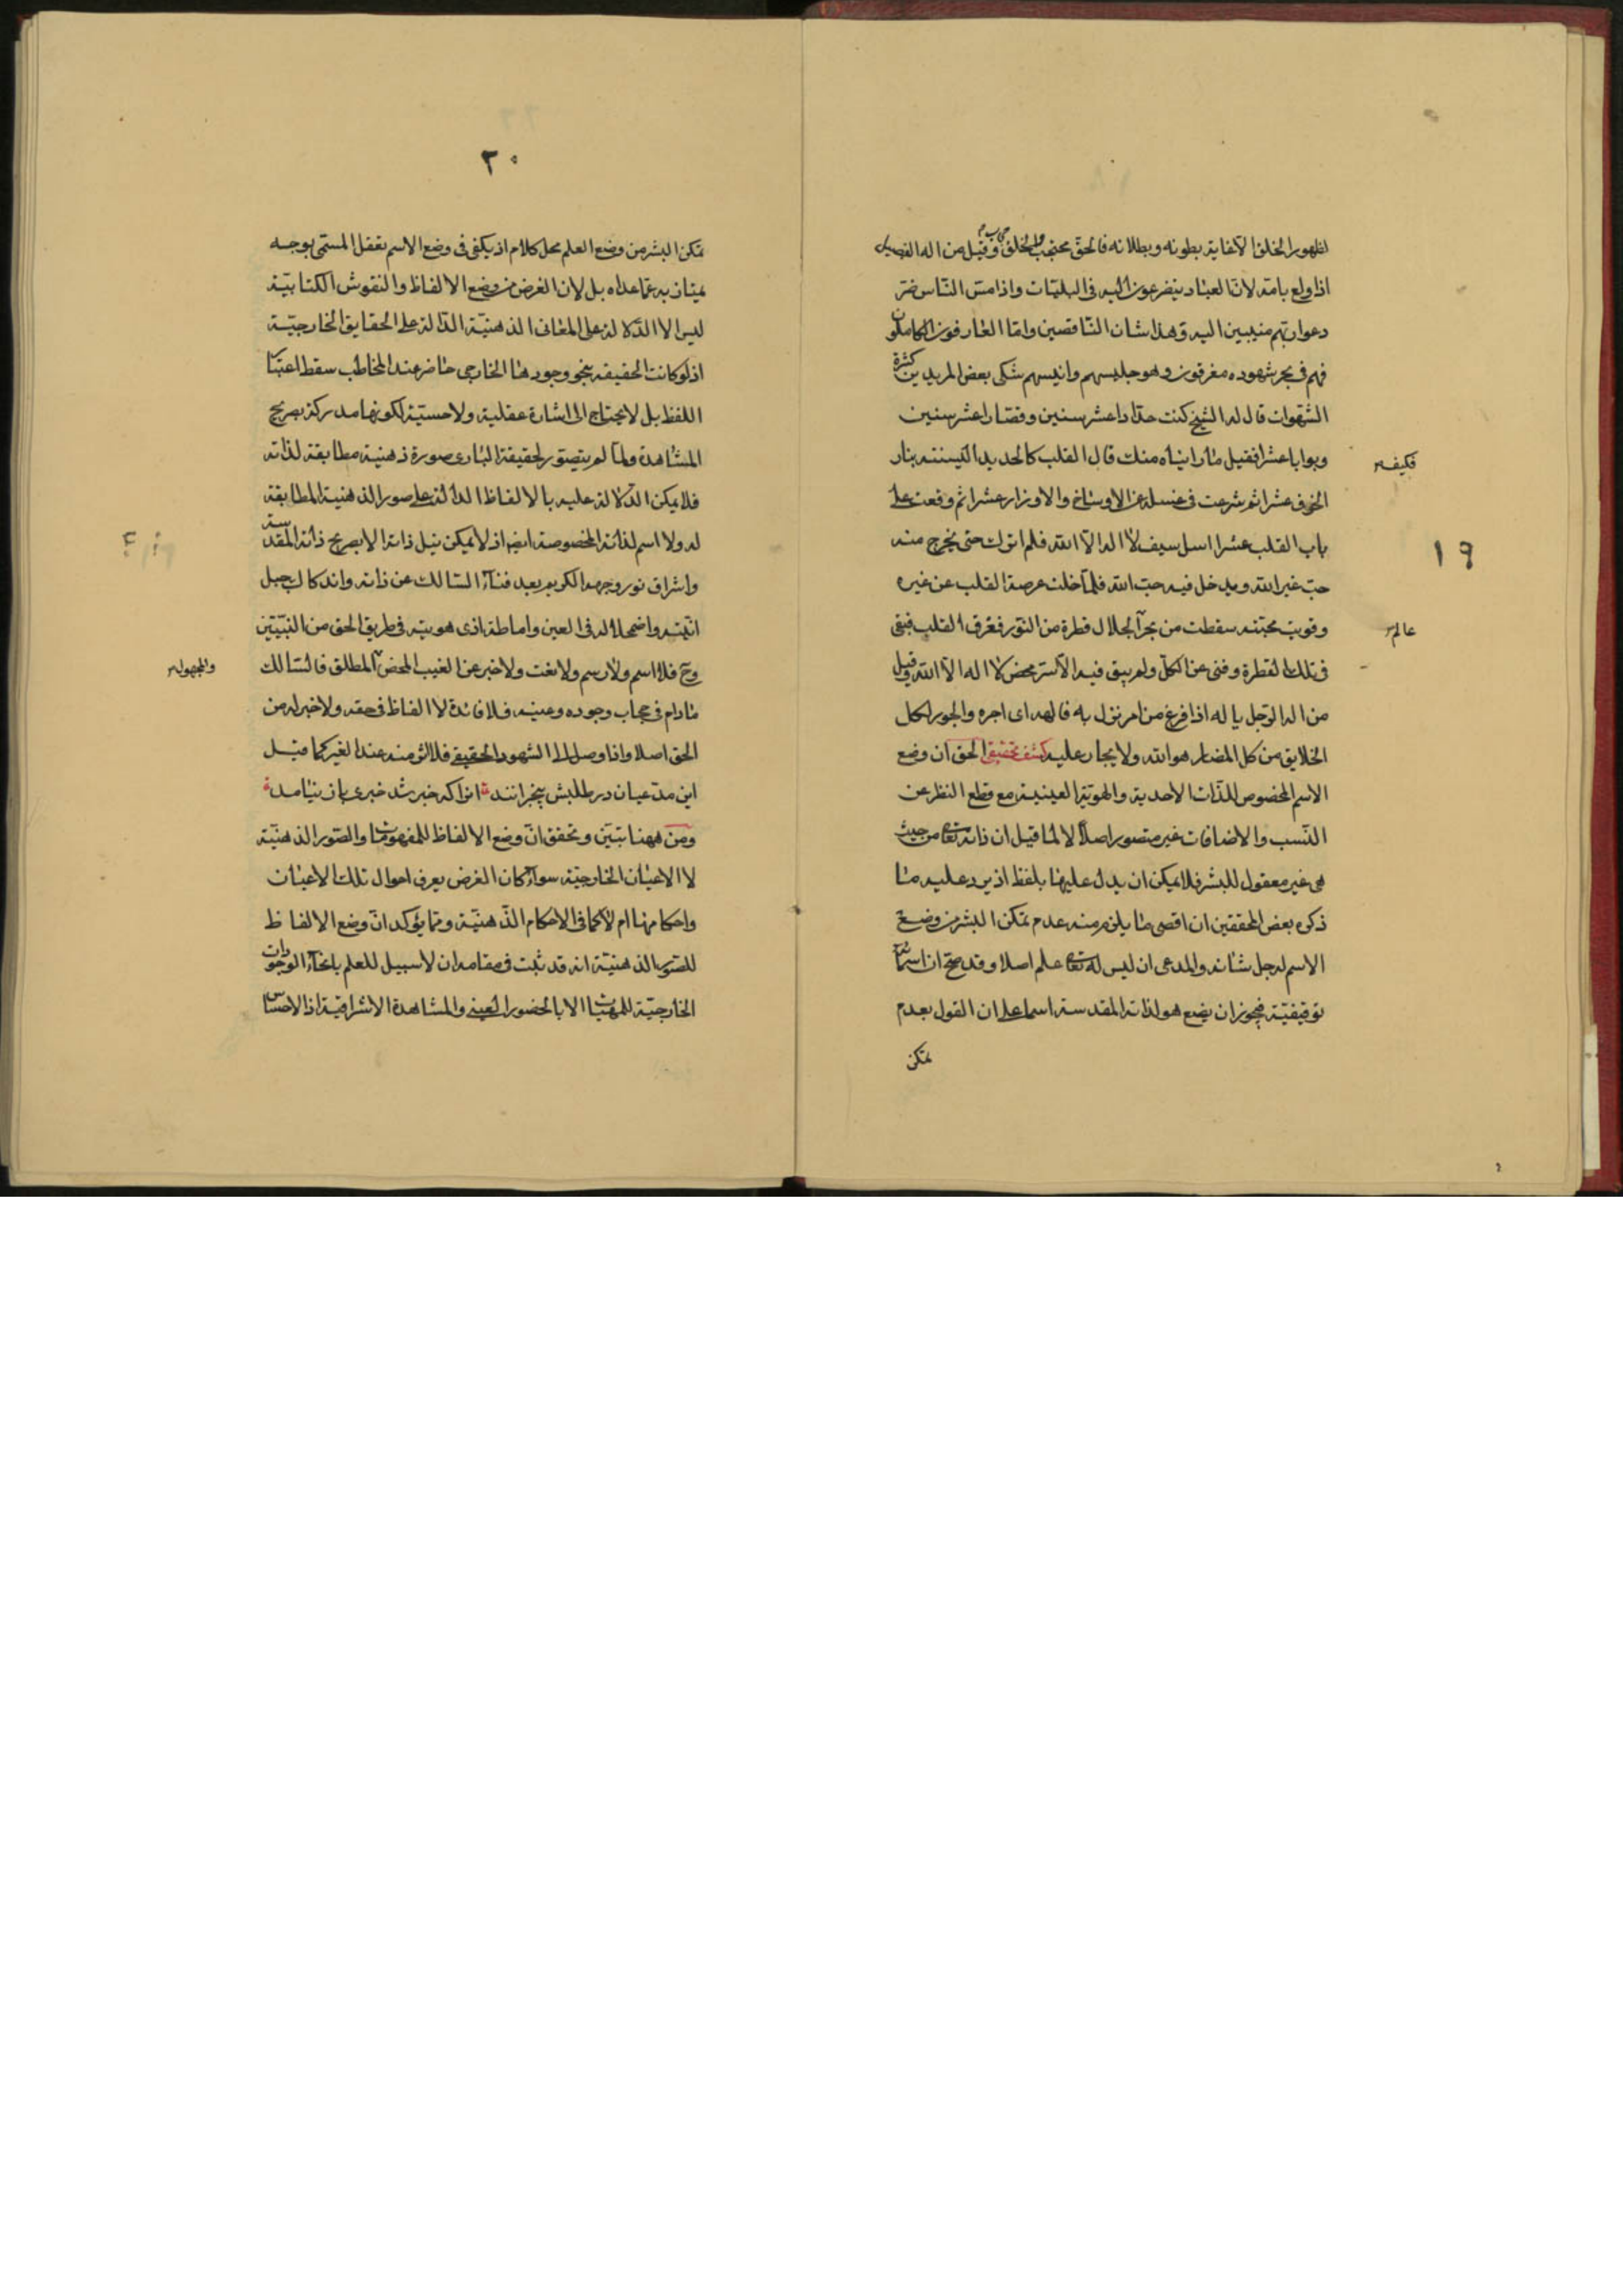 ١٩
لظهور الخلق الا غاية بطونه وبطلانه فالحق محتجب والخلق وقيل من اله الفصيل
اذا ولع بامه لان العباد يتضرعون اليه فى البليات واذا مس الناس ضر
دعوا ربهم منيبين اليه وهذا شان الناقصين واما العارفون الكاملون
فهم فى بحر شهوده مغرقون وهو جليسهم وانيسهم شكى بعض المريدين كثرة
الشهوات قال له الشيخ كنت حدادا عشر سنين وقصارا عشر سنين
وبوابا عشرا فقيل ما رايناه منك قال القلب كالحديد الينته بنار
فكيف
الخوف عشرا ثم شرعت فى غسله عن الاوساخ والاوزار عشرا ثم وقفت على
باب القلب عشرا اسل سيف لا اله الا الله فلم اترك حتى يخرج منه
حب غير الله ويدخل فيه حب الله فلما خلت عرصة القلب عن غيره
وقويت محبته سقطت من بحر الجلال قطرة من النور فغرق القلب فبقى
عالم
فى تلك القطرة وفنى عن الكل ولم يبق فيه الا سر محض لا اله الا الله وقيل
من اله الرجل ياله اذا فزع من امر نزل به فالهه اى اجره والمجير لكل
الخلايق من كل المضار هو الله ولا يجار عليه كشف تحقيقى الحق ان وضع
الاسم المخصوص للذات الاحدية والهوية الغيبية مع قطع النظر عن
النسب والاضافات غير متصور اصلا لا لما قيل ان ذاته تعا من حيث
هى غير معقول للبشر فلا يمكن ان يدل عليها بلفظ اذ يرد عليه ما
ذكره بعض المحققين ان اقصى ما يلزم منه عدم تمكن البشر من وضع
الاسم له جل شانه والمدعى ان ليس له تعا علم اصلا وقد صح ان اسمائه
توقيفية فيجوز ان يضع هو لذاته المقدسة اسما على ان القول بعدم
تمكن
٢٠
تمكن البشر من وضع العلم محل كلام اذ يكفى فى وضع الاسم تعقل المسمى بوجه
يمتاز به عما عداه بل لان الغرض من وضع الالفاظ والنقوش الكتابية
ليس الا الدلالة على المعانى الذهنية الدالة على الحقايق الخارجية
اذ لو كانت الحقيقه بنحو وجودها الخارجى حاضر عند المخاطب سقط اعتبار
اللفظ بل لا يحتاج الى اشارة عقلية ولا حسية لكونها مدركة بصريح
المشاهدة ولما لم يتصور لحقيقة البارى صورة ذهنية مطابقة لذاته
فلا يمكن الدلالة عليه بالالفاظ الدالة على صور الذهنية المطابقة
له ولا اسم لذاته المخصوصة ايضا اذ لا يمكن نيل ذاته الا بصريح ذاته المقدسة
واشراق نور وجهه الكريم بعد فناء السالك عن ذاته واندكاك جبل
انيته واضمحلاله فى العين واماطة اذى هويته فى طريق الحق من النبيين
وح فلا اسم ولا رسم ولا نعت ولا خبر عن الغيب المحض المطلق فالسالك
والمجهول
مادام فى حجاب وجوده وعينه فلا فائدة لا الفاظ فى حقه ولا خبر له من
الحق اصلا واذا وصل الى الشهود الحقيقى فلا اثر منه عند الغير كما قيل
اين مدعيان در طلبش بيخبرانند انرا كه خبر شد خبرى باز نيامد
ومن ههنا تبين وتحقق ان وضع الالفاظ للمفهومات والصور الذهنية
لا الاعيان الخارجية سواء كان الغرض يعرف احوال تلك الاعيان
واحكامها ام لا كما فى الاحكام الذهنية ومما يؤكد ان وضع الالفاظ
للصور الذهنية انه قد ثبت فى مقامه ان لا سبيل للعلم بانحاء الوجودات
الخارجية للمهيات الا بالحضور العينى والمشاهدة الاشراقية اذ الاحساس